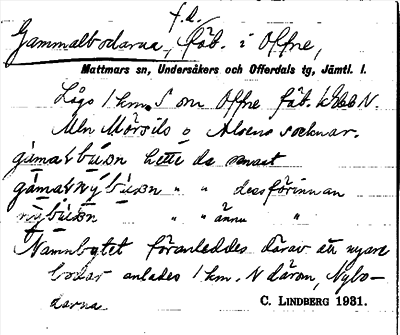 f.d.
Gammalbodarna, fäb. i Offne,
Mattmars sn, Undersåkers och Offerdals tg, Jämtl. l.
Lågo 1 km. S om Offne fäb. N
Mln Mörsils o Alsens socknar.
hette de senast
" " dessförinnan
" " ännu "
Namnbytet föranleddes därav att nyare
bodar anlades 1 km. N därom, Nybo-
darna.
C. LINDBERG 1931.